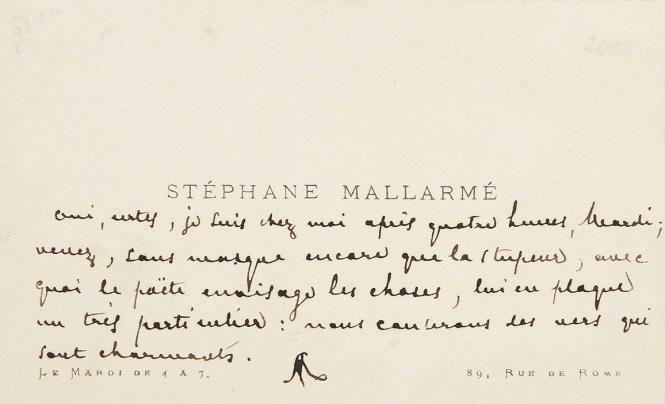 STÉPHANE MALLARMÉ
Oui, certes, je suis chez moi après quatre heures, Mardi;
venez, sans masque encore que la stupeur, avec
quoi le poëte envisage les choses, lui en plaque
un très particulier: nous causerons des vers qui
sont charmants.
SM
LE MARDI DE 4 A 7.
89, RUE DE ROME